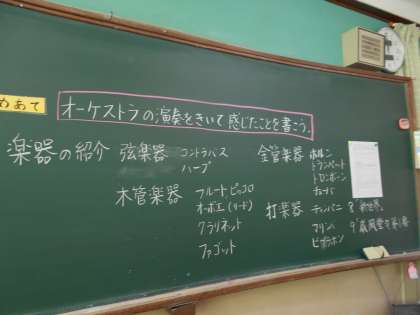 めあて
オーケストラの演奏をきいて感じたことを書こう。
楽器の紹介
弦楽器 コントラバス
ハープ
木管楽器 フルート ピッコロ
オーボエ(リード)
クラリネット
ファゴット
金管楽器 ホルン
トランペット
トロンボーン
チューバ
打楽器 ティンパニ
マリンバ
ビブラフォン
8 "新世界"
9 "威風堂々